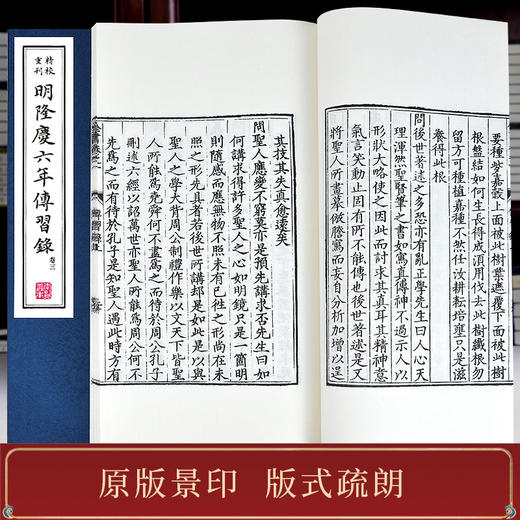 精校
重刊
明隆慶六年傳習錄
卷三
要種些嘉穀上面被此樹葉遮覆下面被此樹
根盤結如何生長得成須用伐去此樹纖根勿
留方可種植嘉種不然任汝耕耘培壅只是滋
養得此根
問後世著述之多恐亦有亂正學先生曰人心天
理渾然聖賢筆之書如寫真傳神不過示人以
形狀大略使之因此而討求其真耳其精神意
氣言笑動止固有所不能傳也後世著述是又
將聖人所畫摹倣謄寫而妄自分析加增以逞
其技其失真愈遠矣
問聖人應變不窮莫亦是預先講求否先生曰如
何講求得許多聖人之心如明鏡只是一箇明
則隨感而應無物不照未有已往之形尚在未
照之形先具者若後世所講卻是如此是以與
聖人之學大背周公制禮作樂以文天下皆聖
人所能為堯舜何不盡為之而待於周公孔子
刪述六經以詔萬世亦聖人所能為周公何不
先為之而有待於孔子是知聖人遇此時方有
原版景印 版式疏朗